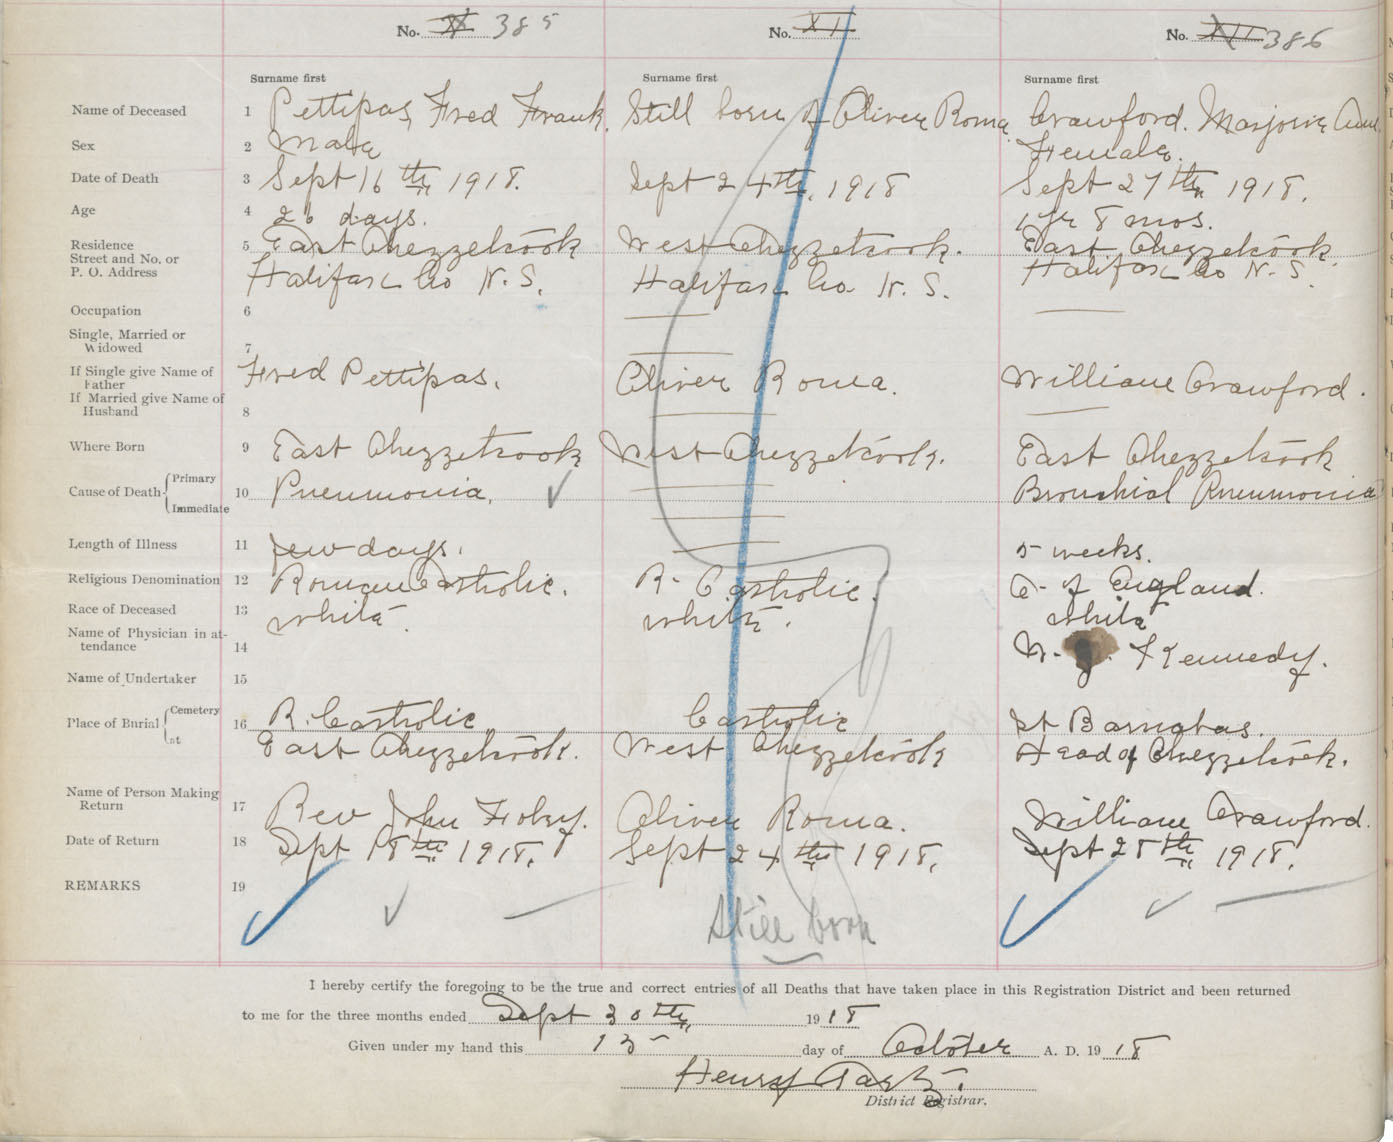 No. X 385 No. XI No. XII 386
Surname first Surname first Surname first
Name of Deceased 1 Pettipas, Fred Frank. Still born of Oliver Roma Crawford. Marjorie
Sex 2 Male Female.
Date of Death 3 Sept 16th 1918. Sept 24th, 1918 Sept 27th 1918.
Age 4 26 days. 1 yr 8 mos.
Residence 5 East Chezzetcook West Chezzetcook. East Chezzetcook.
Street and No. or
P. O. Address Halifax Co N. S. Halifax Co. N. S. Halifax Co N. S.
Occupation 6
Single, Married or
Widowed 7
If Single give Name of Fred Pettipas. Oliver Roma. William Crawford.
Father
If Married give Name of
Husband 8
Where Born 9 East Chezzetcook West Chezzetcook. East Chezzetcook
Cause of Death Primary
10 Pneumonia. Bronchial Pneumonia
Immediate
Length of Illness 11 few days. 5 weeks.
Religious Denomination 12 Roman Catholic. R. Catholic. C. of England.
Race of Deceased 13 white. white. white
Name of Physician in at-
tendance 14 Kennedy.
Name of Undertaker 15
Place of Burial Cemetery
16 R. Catholic Catholic St Barnabas.
at East Chezzetcook. West Chezzetcook Head of Chezzetcook.
Name of Person Making
Return 17 Rev John Oliver Roma. William Crawford.
Date of Return 18 Sept 18th 1918. Sept 24th 1918. Sept 28th 1918.
REMARKS 19
Still born
I hereby certify the foregoing to be the true and correct entries of all Deaths that have taken place in this Registration District and been returned
to me for the three months ended Sept 30th, 1918
Given under my hand this day of October A. D. 1918
Henry
District Registrar.